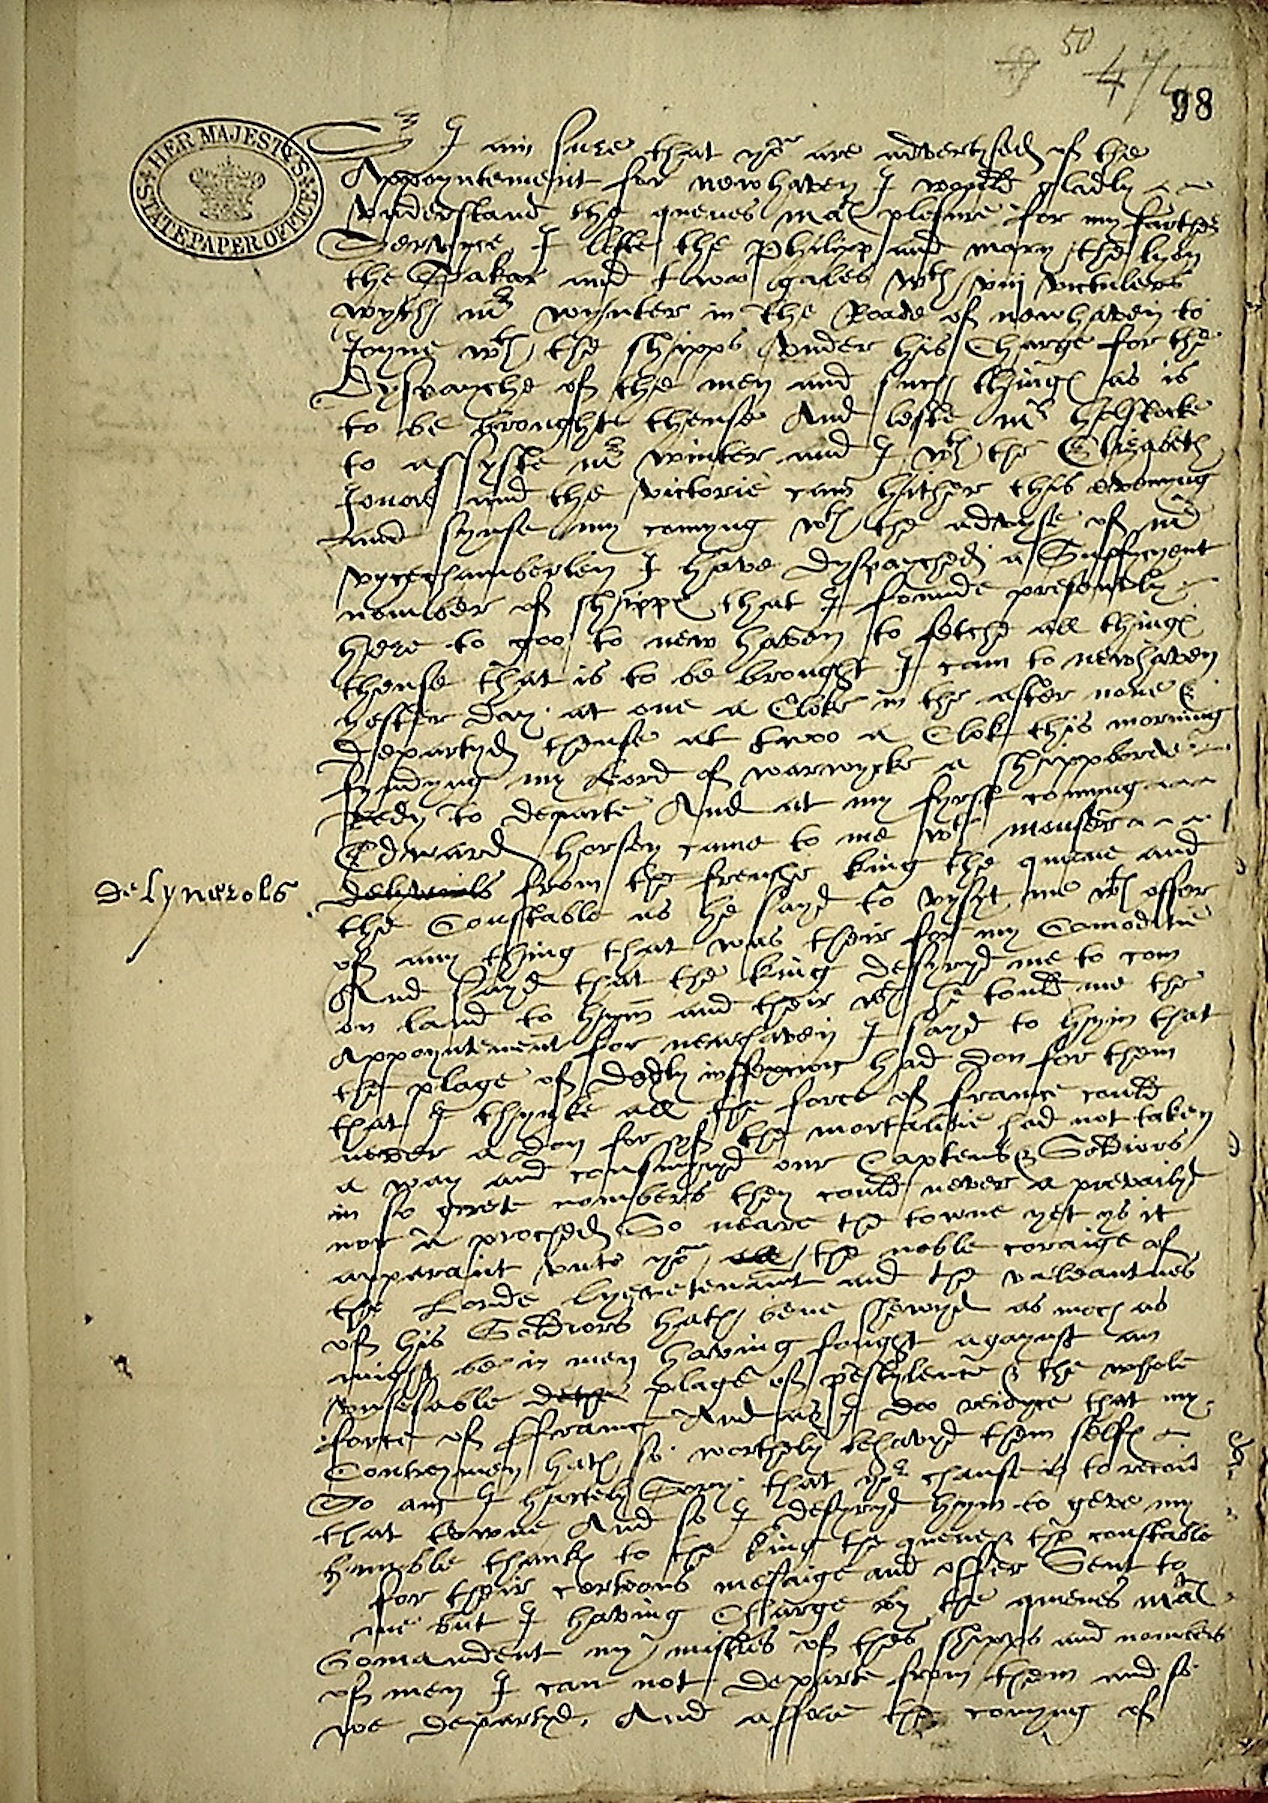 50
47
98
HER MAJESTY'S
STATE PAPER OFFICE
Sr I am sure that yor are advertysed of the
Appoyntement for newhaven I would gladly
vnderstand the quenes mats plesure for my farther
Servyce, I lefte the Phillipp and mary the lyon
the Sakar and two galees wth viij victulers
wyth mr wynter in the Roade of newhaven to
Joyne wth the shipps vnder his Charge for the
Dyspatche of the men and such things as is
to be brought thense And lefte mr holstocke
to assyste mr winter and I wth the Elizabeth
Jonas and the victorie cam hither this evenyng
and synse my comyng wth the advyse of mr
vycechamberlen I have dyspatched a Suffycyent
nomber of shipps that I founde presently
here to goo to new haven to fetche all things
thense that is to be brought I cam to newhaven
yester day at one a Cloke in the after none &
departyd thense at twoo a Clok this morning
fyndyng my Lord of warwycke a shippborde
Redy to departe And at my fyrst comming
Edward horsey came to me wth mounser
de lynerols
from the frenshe king the quene and
the Constable as he sayd to vysyt me wth offer
of any thing that was their for my Comoditie
And sayd that the king desyryd me to com
on land to hym and their wth he tould me the
Appoyntement for newhaven I sayd to hym that
the plage of dedly inffexcion had don for them
that I thynke all the force of france could
never a don for yf the mortalitie had not taken
a way and consumyd our Captens & Soldiors
in so grete nombers they could never a prevailyd
nor a proched So neare the towne yet ys it
apparaint vnto yor all the noble coraige of
the Lorde Lyevetenant and the valeantnes
of his Soldiors hath bene shewyd as moch as
might be in men having fought agaynst an
vnsesable plage of pestylence & the whole
force of ffrance And as I doo reioyce that my
Contreymen hath so worthely behavyd them selfs
So am I hartely Sory that yor chanse is to recover
that towne And so I desyryd hym to geve my
humble thanks to the king the quene & the constable
for their curteous message and offer Sent to
me but I having Charge by the quenes mats
Comandent my mistres of thes shipps and nombers
of men I can not departe from them and so
we departyd. And affore the comyng of